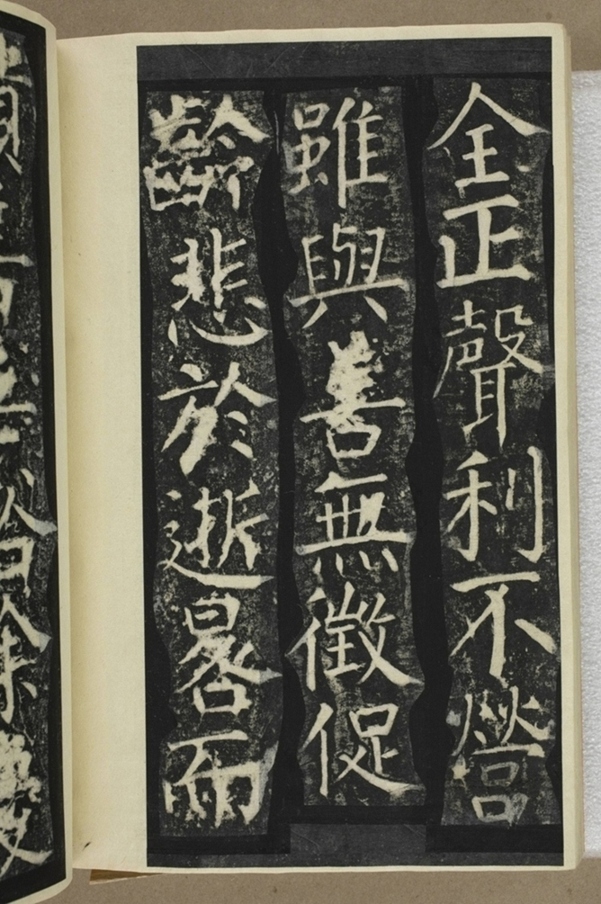 全正聲利不營
雖與善無徵促
齡悲於逝晷而